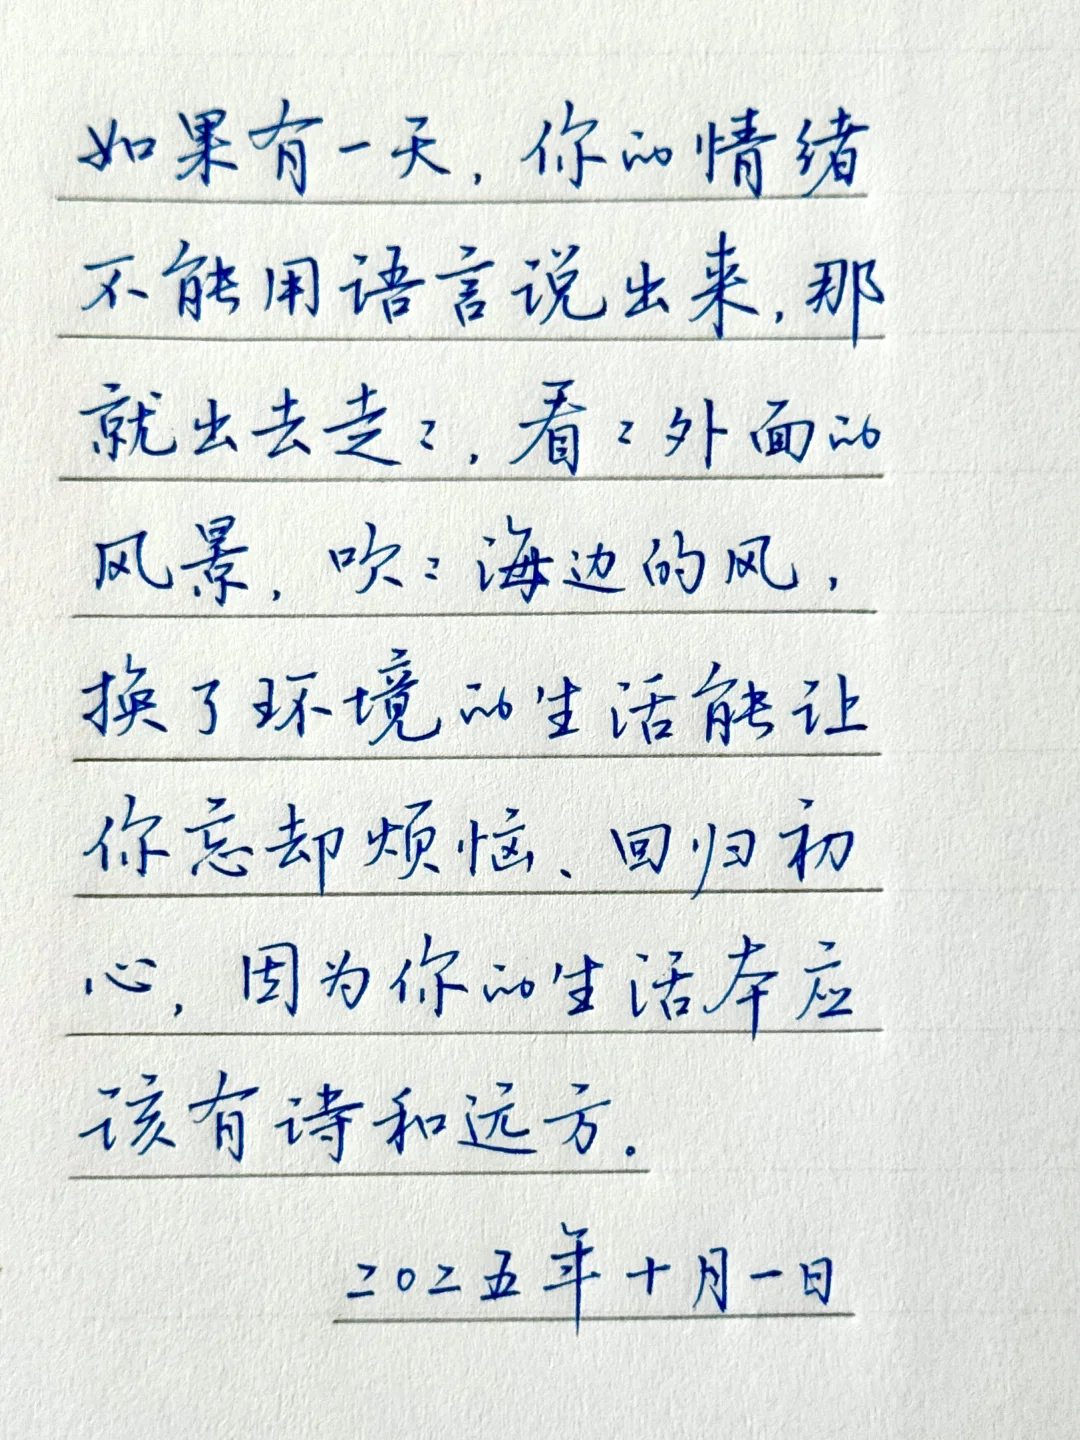 如果有一天,你的情绪
不能用语言说出来,那
就出去走〻,看〻外面的
风景,吹〻海边的风,
换了环境的生活能让
你忘却烦恼、回归初
心,因为你的生活本应
该有诗和远方.
二〇二五年十月一日